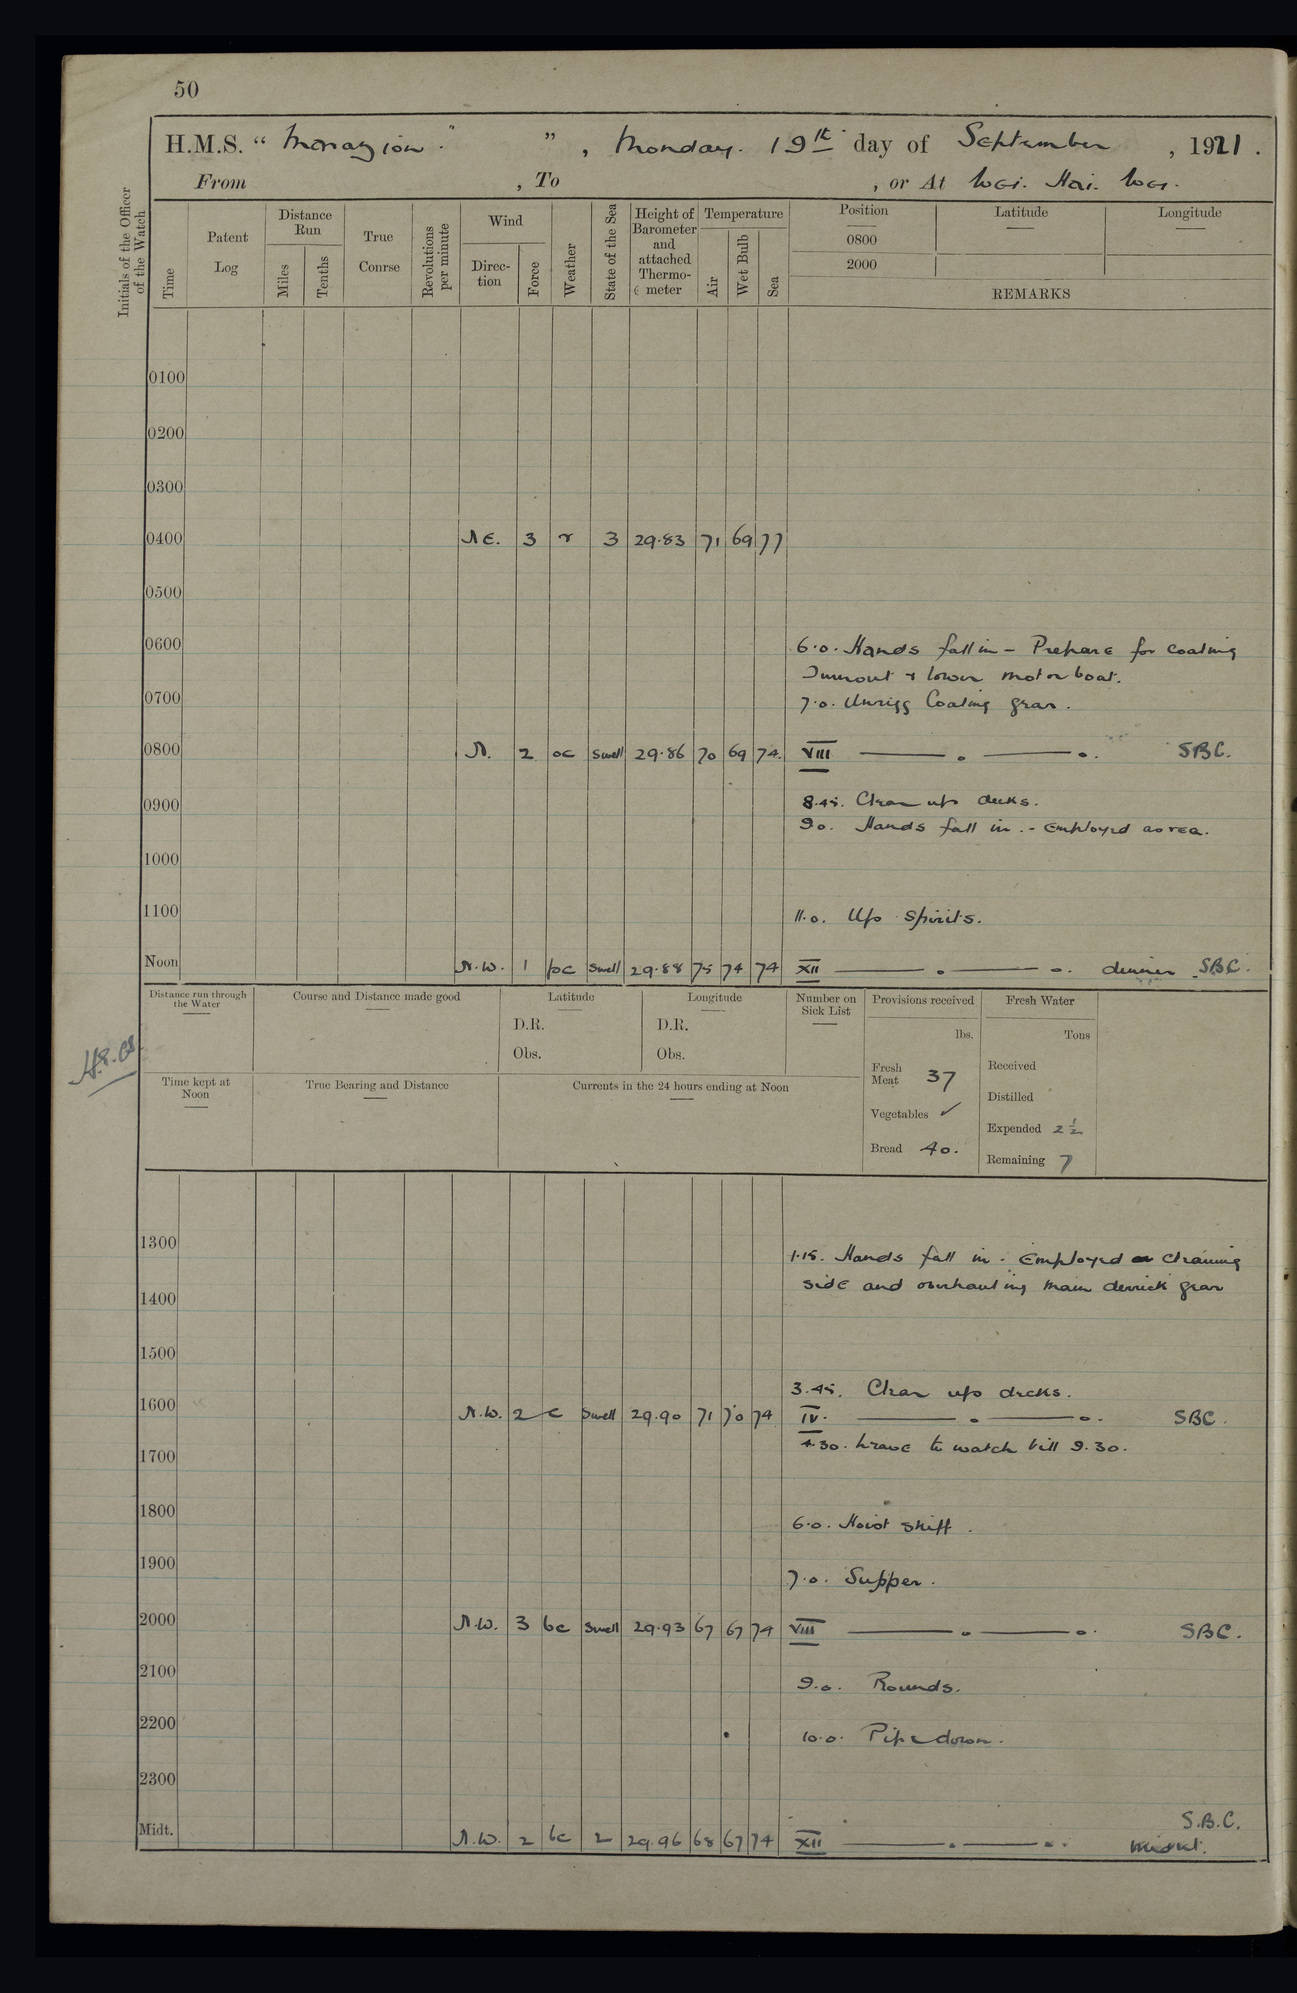 50
H.M.S. " Marazion. " ", Monday. 19th day of September , 1921.
From , To , or At Wei. Hai. Wei.
Initials of the Officer of the Watch
Time
Patent Log
Distance Run
Miles
Tenths
True Course
Revolutions per minute
Wind
Direc-tion
Force
Weather
State of the Sea
Height of Barometer and attached Thermo-meter
Temperature
Air
Wet Bulb
Sea
Position
Latitude
Longitude
0800
2000
REMARKS
0100
0200
0300
0400 N E. 3 r 3 29.83 71 69 77
0500
0600 6.0. Hands fall in - Prepare for coaling
Turnout & lower motor boat.
0700 7.0. Unrigg Coaling gear.
0800 N. 2 oc Swell 29.86 70 69 74. VIII SBC.
0900 8.45. Clear up decks.
9.0. Hands fall in. - Employed as req.
1000
1100 11.0. Up Spirits.
Noon N.W. 1 bc Swell 29.88 75 74 74 XII dinner SBC.
Distance run through the Water
Course and Distance made good
Latitude
D.R.
Obs.
Longitude
D.R.
Obs.
Number on Sick List
Provisions received
lbs.
Fresh Meat 37
Vegetables ✓
Bread 40.
Fresh Water
Tons
Received
Distilled
Expended 2½
Remaining 7
Time kept at Noon
True Bearing and Distance
Currents in the 24 hours ending at Noon
1300 1.15. Hands fall in. Employed cleaning
side and overhauling main derrick gear
1400
1500
3.45. Clear up decks.
1600 N.W. 2 c Swell 29.90 71 70 74 IV. SBC.
4.30. Leave to watch till 9.30.
1700
1800 6.0. Hoist skiff.
1900 7.0. Supper.
2000 N.W. 3 bc Swell 29.93 67 67 74 VIII SBC.
2100 9.0. Rounds.
2200 10.0. Pipe down.
2300
S.B.C.
Midt. N.W. 2 bc 2 29.96 68 67 74 XII midnt.